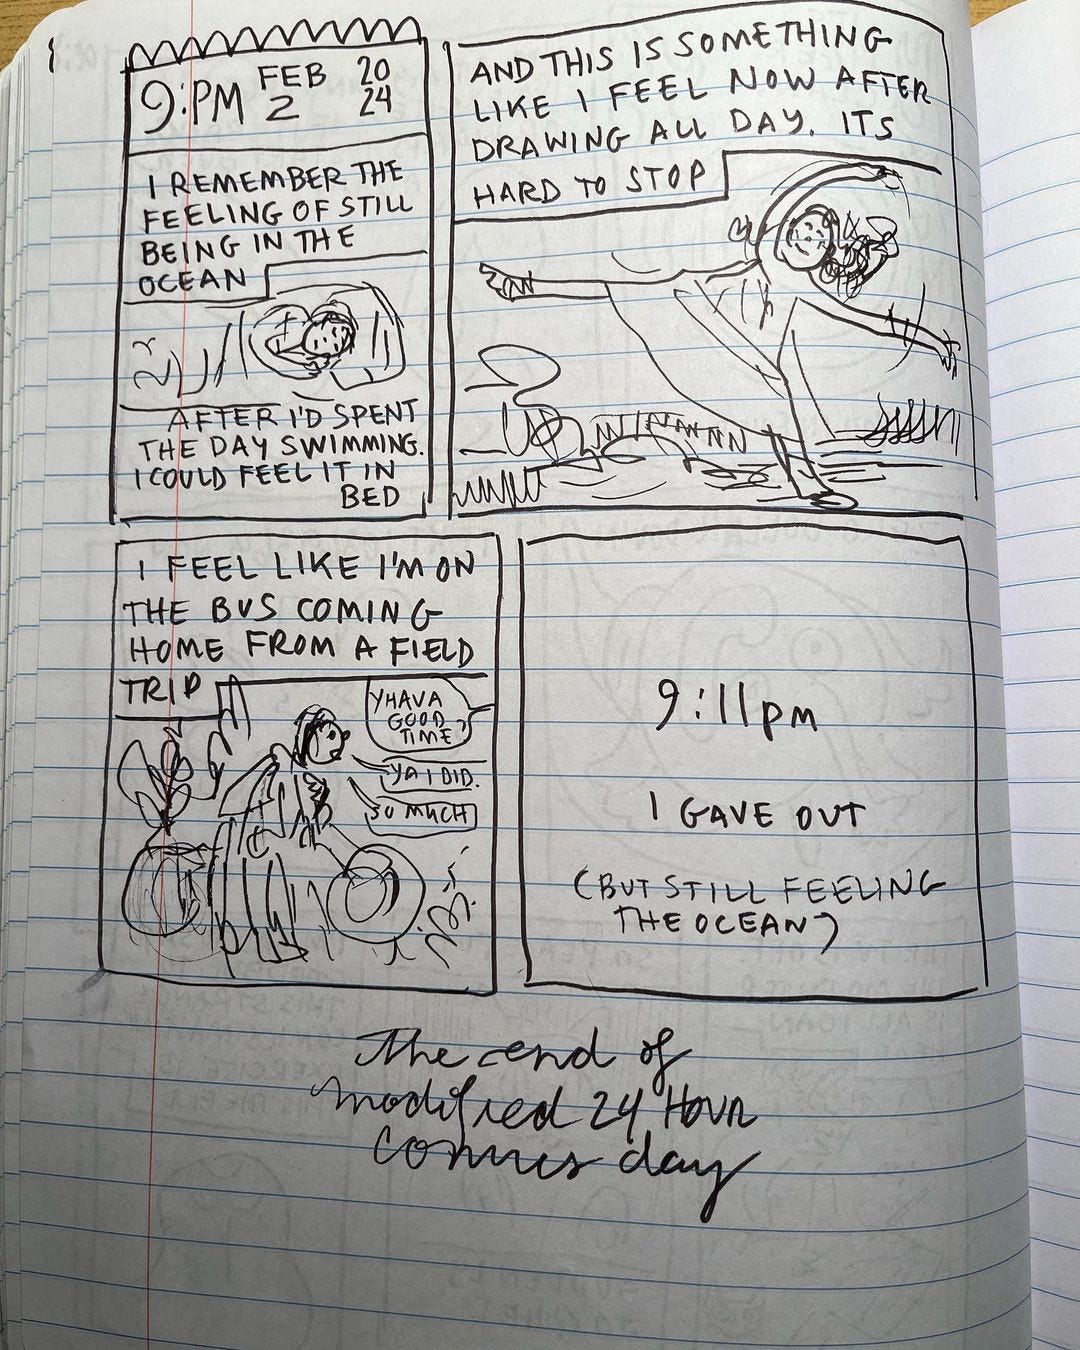 9:PM FEB 2 20 24
I REMEMBER THE
FEELING OF STILL
BEING IN THE
OCEAN
AFTER I'D SPENT
THE DAY SWIMMING.
I COULD FEEL IT IN
BED
AND THIS IS SOMETHING
LIKE I FEEL NOW AFTER
DRAWING ALL DAY. ITS
HARD TO STOP
I FEEL LIKE I'M ON
THE BUS COMING
HOME FROM A FIELD
TRIP
YHAVA
GOOD
TIME?
YA I DID.
SO MUCH
9:11pm
I GAVE OUT
(BUT STILL FEELING
THE OCEAN)
The end of
modified 24 Hour
comics day